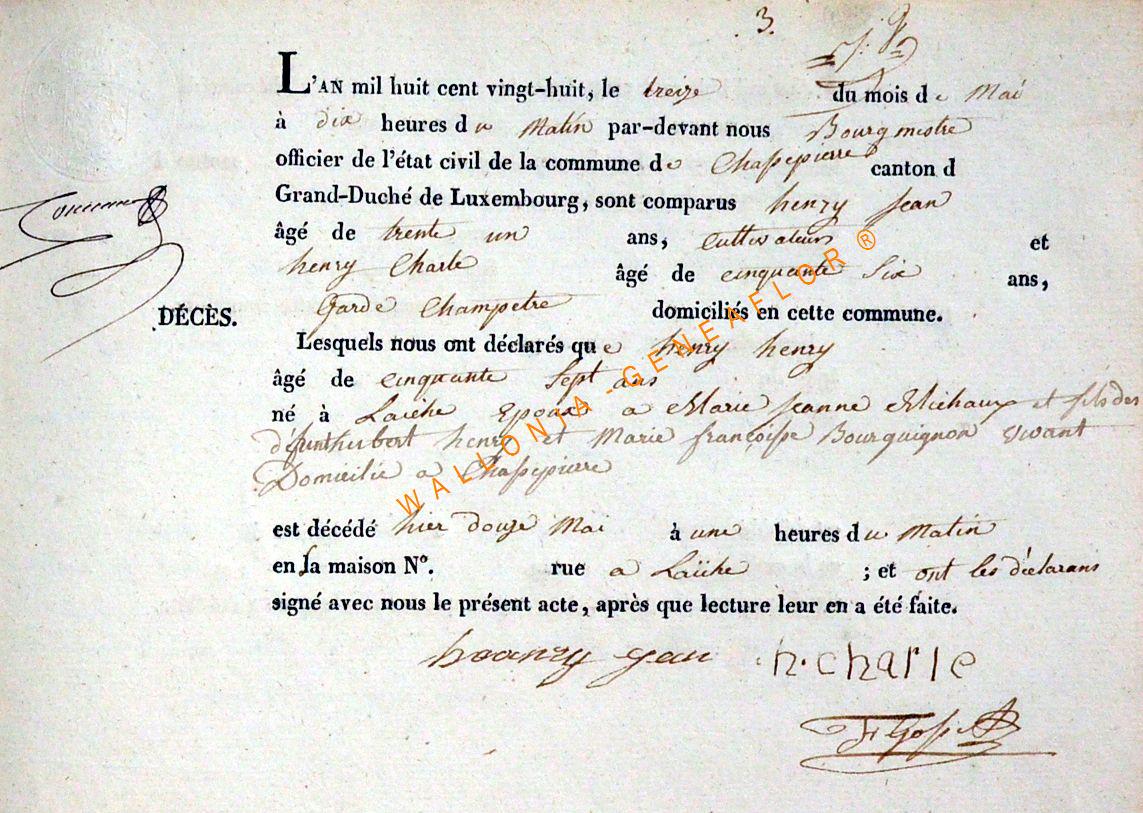 3.
L'AN mil huit cent vingt-huit, le treize du mois de Mai
à dix heures du Matin par-devant nous Bourgmestre
officier de l'état civil de la commune de Chassepierre canton d
Grand-Duché de Luxembourg, sont comparus henry Jean
âgé de trente un ans, Cultivateur et
henry Charle âgé de cinquante Six ans,
DÉCÈS.
Garde Champetre domiciliés en cette commune.
Lesquels nous ont déclarés que henry henry
âgé de cinquante Sept ans
né à Laiche Epoux a Marie Jeanne Michaux et fils des
défunt hubert henry et Marie françoisse Bourguignon vivant
Domicilié a Chassepierre
est décédé hier douze Mai à une heures du Matin
en la maison N°. rue a Laiche ; et ont les déclarans
signé avec nous le présent acte, après que lecture leur en a été faite.
hanry Jean h. charle
WALLONIA-GENEAFLOR ®